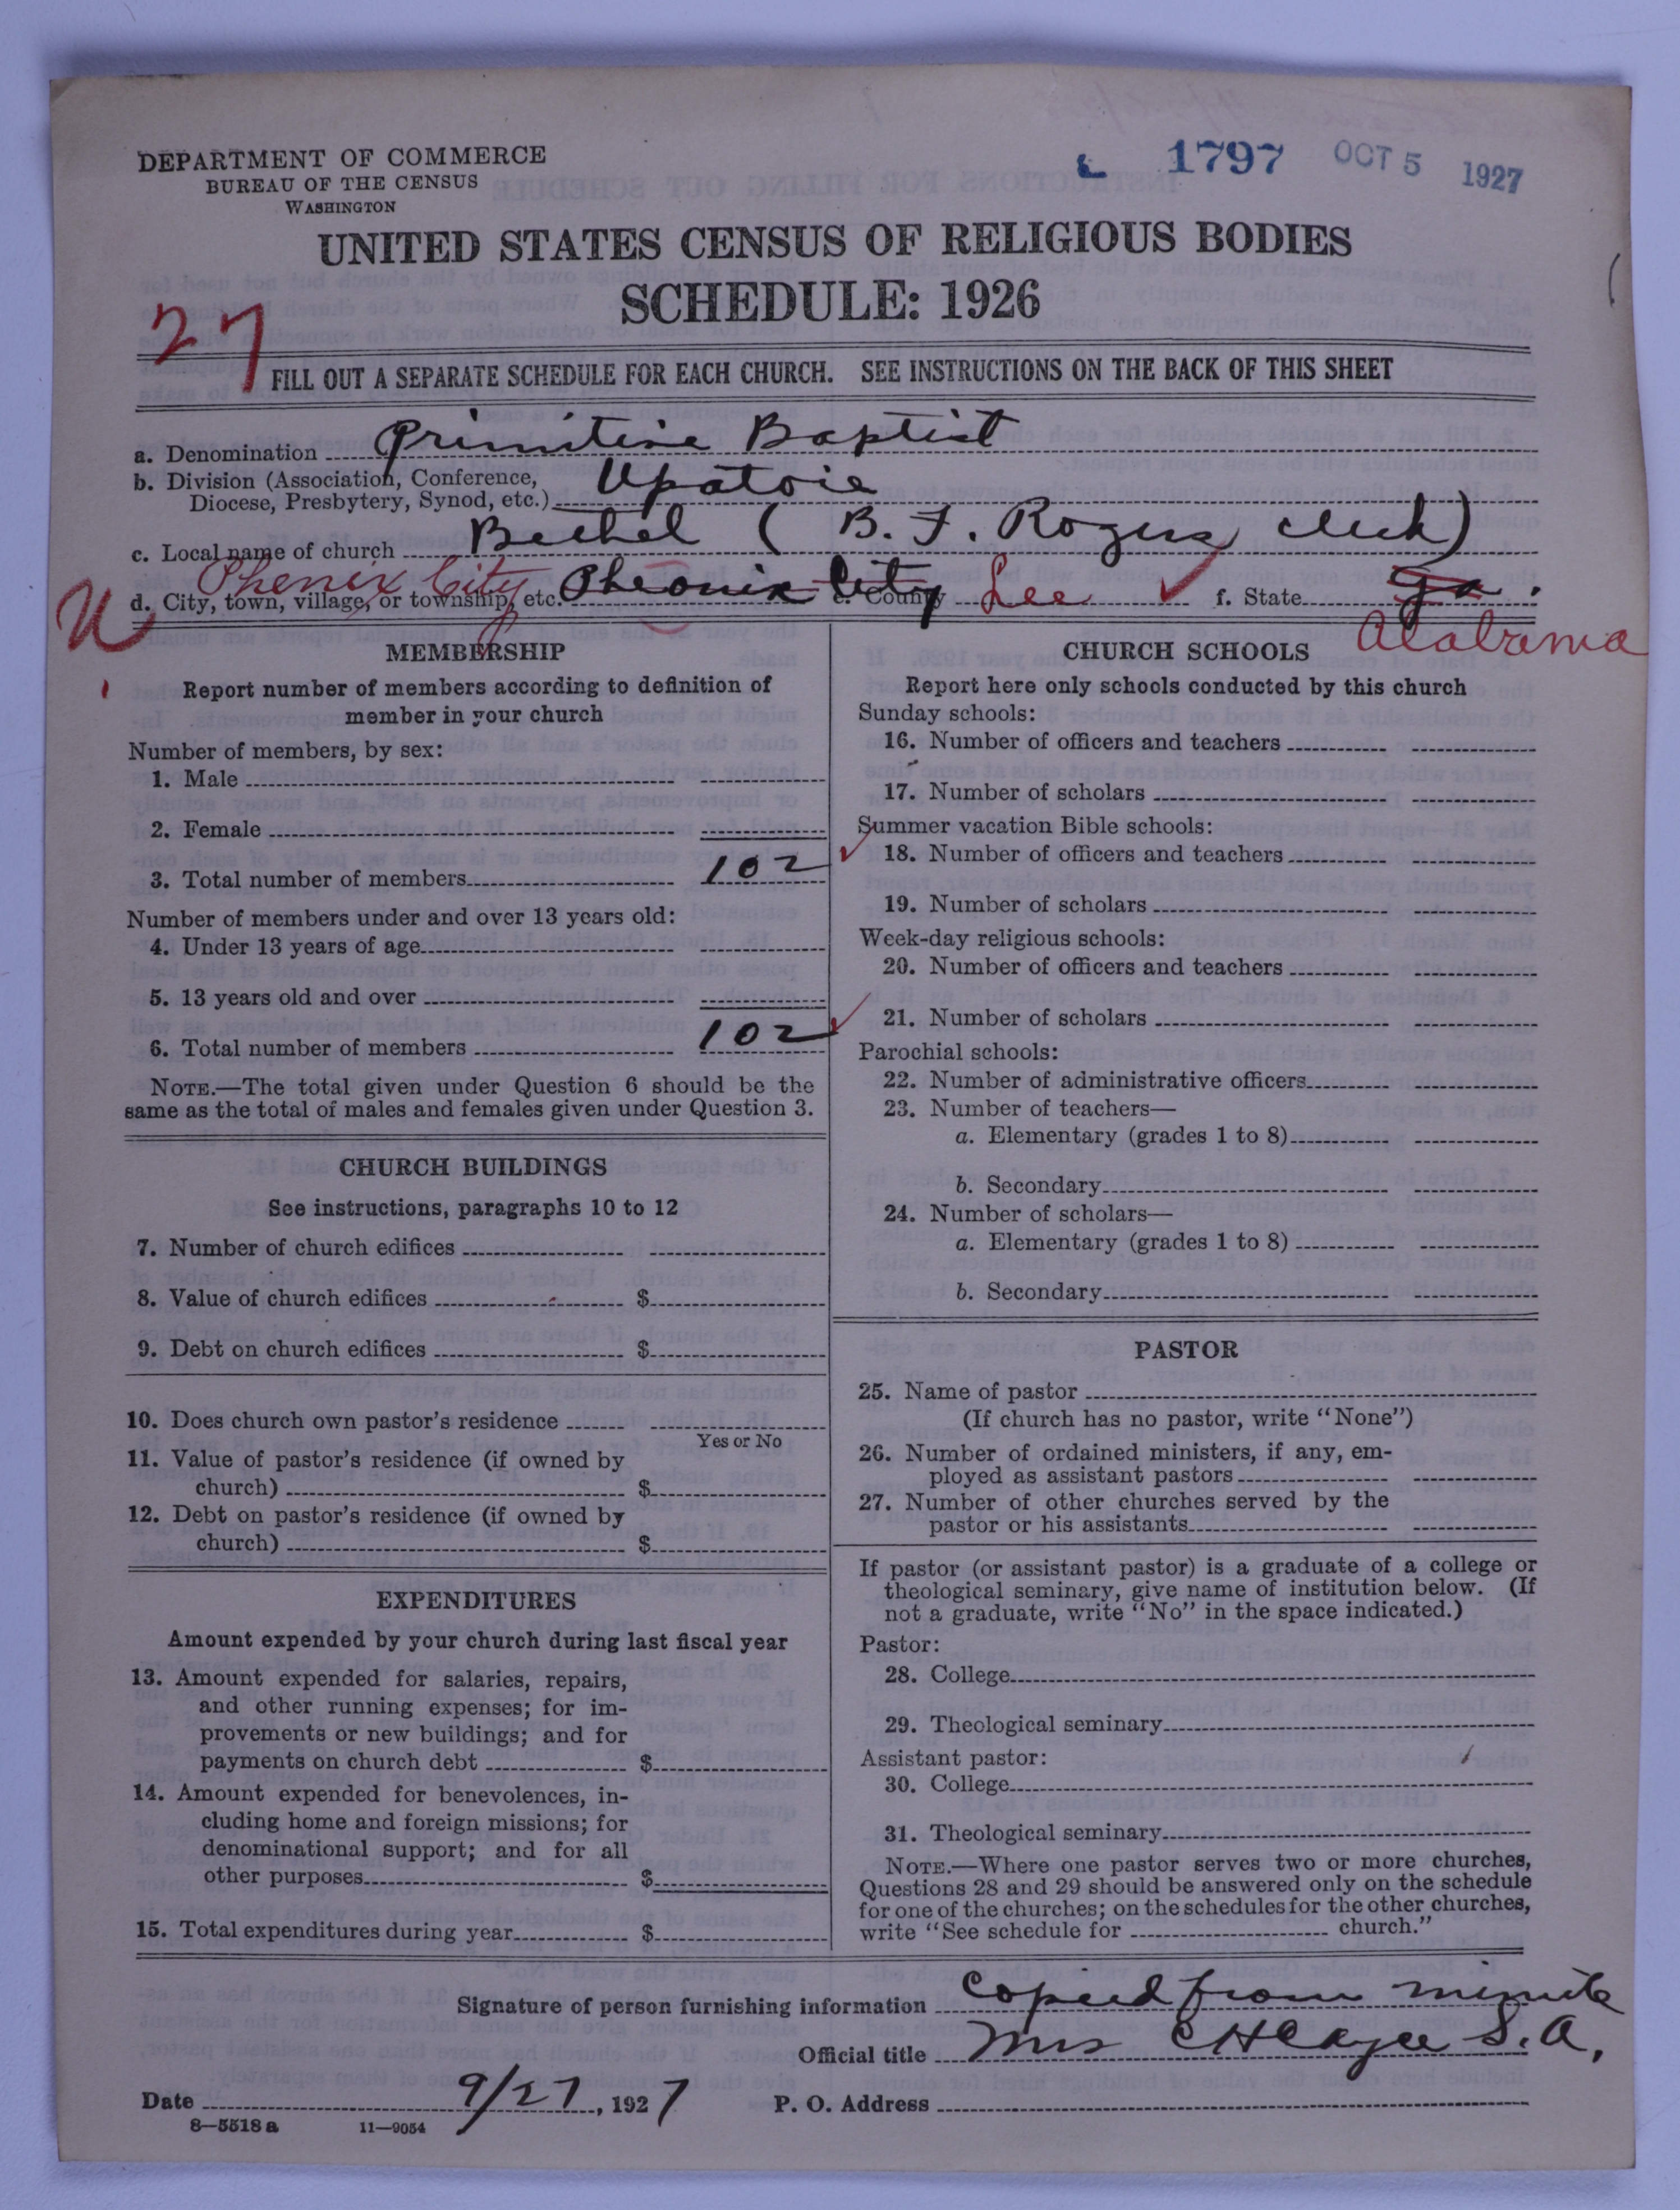 DEPARTMENT OF COMMERCE
BUREAU OF THE CENSUS
WASHINGTON
1797 OCT 5 1927
UNITED STATES CENSUS OF RELIGIOUS BODIES
SCHEDULE: 1926
27
FILL OUT A SEPARATE SCHEDULE FOR EACH CHURCH. SEE INSTRUCTIONS ON THE BACK OF THIS SHEET
a. Denomination Primitive Baptist
b. Division (Association, Conference,
Diocese, Presbytery, Synod, etc.) Upatoie
c. Local name of church Bethel ( B. F. Rogers clerk)
Phenix City
d. City, town, village, or township, etc. Pheonix City e. County Lee f. State Ga.
U
Alabama
MEMBERSHIP
Report number of members according to definition of
member in your church
Number of members, by sex:
1. Male
2. Female
3. Total number of members 102
Number of members under and over 13 years old:
4. Under 13 years of age
5. 13 years old and over
6. Total number of members 102
NOTE.—The total given under Question 6 should be the
same as the total of males and females given under Question 3.
CHURCH BUILDINGS
See instructions, paragraphs 10 to 12
7. Number of church edifices
8. Value of church edifices $
9. Debt on church edifices $
10. Does church own pastor's residence
Yes or No
11. Value of pastor's residence (if owned by
church) $
12. Debt on pastor's residence (if owned by
church) $
EXPENDITURES
Amount expended by your church during last fiscal year
13. Amount expended for salaries, repairs,
and other running expenses; for im-
provements or new buildings; and for
payments on church debt $
14. Amount expended for benevolences, in-
cluding home and foreign missions; for
denominational support; and for all
other purposes $
15. Total expenditures during year $
CHURCH SCHOOLS
Report here only schools conducted by this church
Sunday schools:
16. Number of officers and teachers
17. Number of scholars
Summer vacation Bible schools:
18. Number of officers and teachers
19. Number of scholars
Week-day religious schools:
20. Number of officers and teachers
21. Number of scholars
Parochial schools:
22. Number of administrative officers
23. Number of teachers—
a. Elementary (grades 1 to 8)
b. Secondary
24. Number of scholars—
a. Elementary (grades 1 to 8)
b. Secondary
PASTOR
25. Name of pastor
(If church has no pastor, write "None")
26. Number of ordained ministers, if any, em-
ployed as assistant pastors
27. Number of other churches served by the
pastor or his assistants
If pastor (or assistant pastor) is a graduate of a college or
theological seminary, give name of institution below. (If
not a graduate, write "No" in the space indicated.)
Pastor:
28. College
29. Theological seminary
Assistant pastor:
30. College
31. Theological seminary
NOTE.—Where one pastor serves two or more churches,
Questions 28 and 29 should be answered only on the schedule
for one of the churches; on the schedules for the other churches,
write "See schedule for church."
Signature of person furnishing information Copied from minute
Official title Mrs C H Cagle S. A.
Date 9/27, 1927 P. O. Address
8—5518 a 11—9054